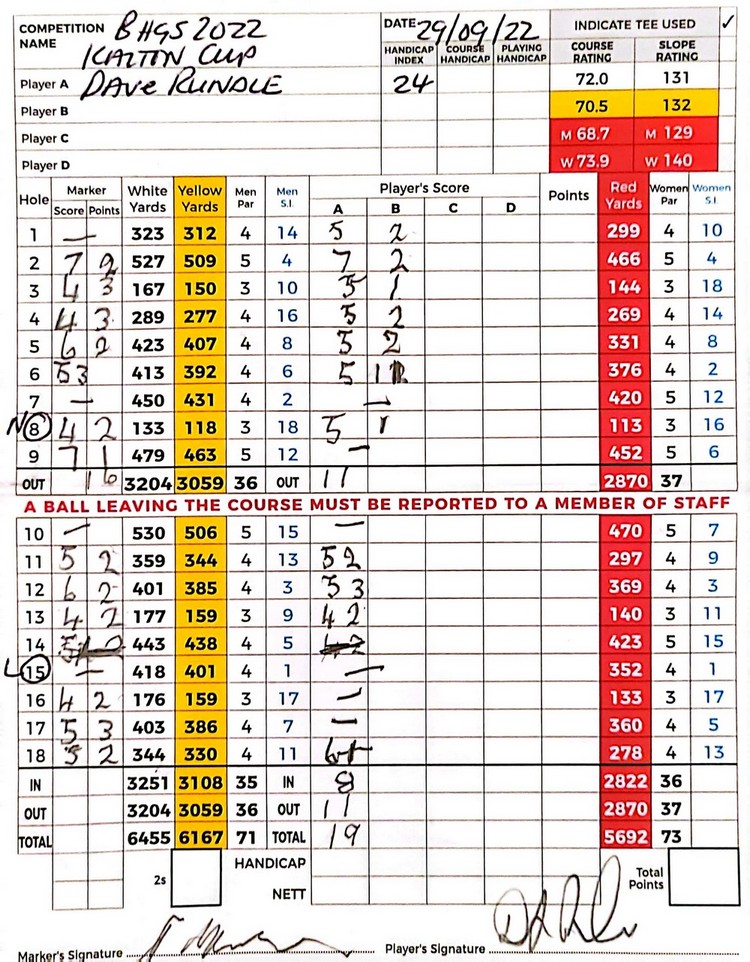 COMPETITION NAME BHGS 2022 DATE 29/09/22 INDICATE TEE USED ✓
KALTIN CUP HANDICAP INDEX COURSE HANDICAP PLAYING HANDICAP COURSE RATING SLOPE RATING
Player A DAVE RUNDLE 24 72.0 131
Player B 70.5 132
Player C M 68.7 M 129
Player D W 73.9 W 140
Hole Marker White Yards Yellow Yards Men Par Men S.I. Player's Score Points Red Yards Women Par Women S.I.
Score Points A B C D
1 — 323 312 4 14 5 2 299 4 10
2 7 2 527 509 5 4 7 2 466 5 4
3 4 3 167 150 3 10 5 1 144 3 18
4 4 3 289 277 4 16 5 2 269 4 14
5 6 2 423 407 4 8 5 2 331 4 8
6 5 3 413 392 4 6 5 1 376 4 2
7 — 450 431 4 2 — 420 5 12
N 8 4 2 133 118 3 18 5 1 113 3 16
9 7 1 479 463 5 12 — 452 5 6
OUT 16 3204 3059 36 OUT 11 2870 37
A BALL LEAVING THE COURSE MUST BE REPORTED TO A MEMBER OF STAFF
10 — 530 506 5 15 — 470 5 7
11 5 2 359 344 4 13 5 2 297 4 9
12 6 2 401 385 4 3 5 3 369 4 3
13 4 2 177 159 3 9 4 2 140 3 11
14 5 443 438 4 5 423 5 15
L 15 — 418 401 4 1 — 352 4 1
16 4 2 176 159 3 17 — 133 3 17
17 5 3 403 386 4 7 — 360 4 5
18 5 2 344 330 4 11 6 1 278 4 13
IN 3251 3108 35 IN 8 2822 36
OUT 3204 3059 36 OUT 11 2870 37
TOTAL 6455 6167 71 TOTAL 19 5692 73
2s HANDICAP Total Points
NETT
Marker's Signature Player's Signature